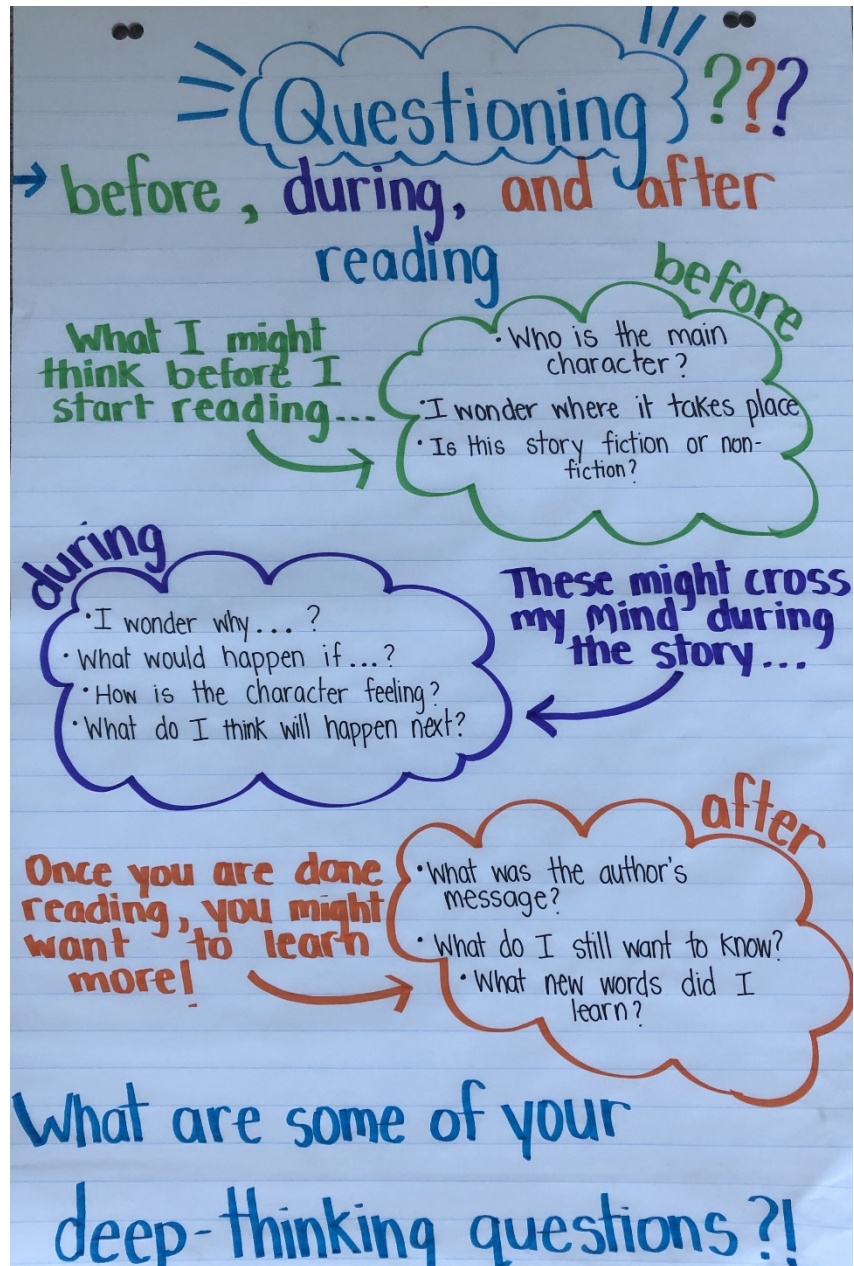 Questioning ???
before, during, and after
reading
before
What I might
think before I
start reading...
• Who is the main
character?
• I wonder where it takes place
• Is this story fiction or non-
fiction?
during
• I wonder why...?
• What would happen if...?
• How is the character feeling?
• What do I think will happen next?
These might cross
my mind during
the story...
after
Once you are done
reading, you might
want to learn
more!
• What was the author's
message?
• What do I still want to know?
• What new words did I
learn?
What are some of your
deep-thinking questions?!